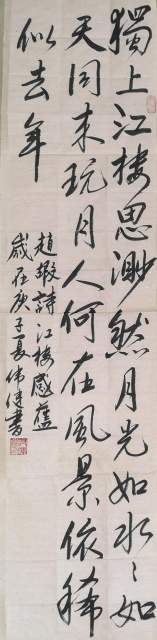 獨上江樓思渺然月光如水〻如
天同來玩月人何在風景依稀
似去年
趙嘏詩江樓感舊
歲在庚子夏偉健書